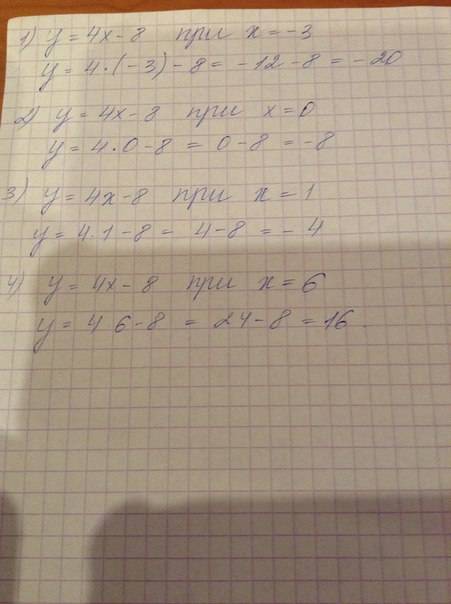 1) y = 4x - 8 при x = -3
y = 4 · (-3) - 8 = -12 - 8 = -20
2) y = 4x - 8 при x = 0
y = 4 · 0 - 8 = 0 - 8 = -8
3) y = 4x - 8 при x = 1
y = 4 · 1 - 8 = 4 - 8 = -4
4) y = 4x - 8 при x = 6
y = 4 6 - 8 = 24 - 8 = 16.